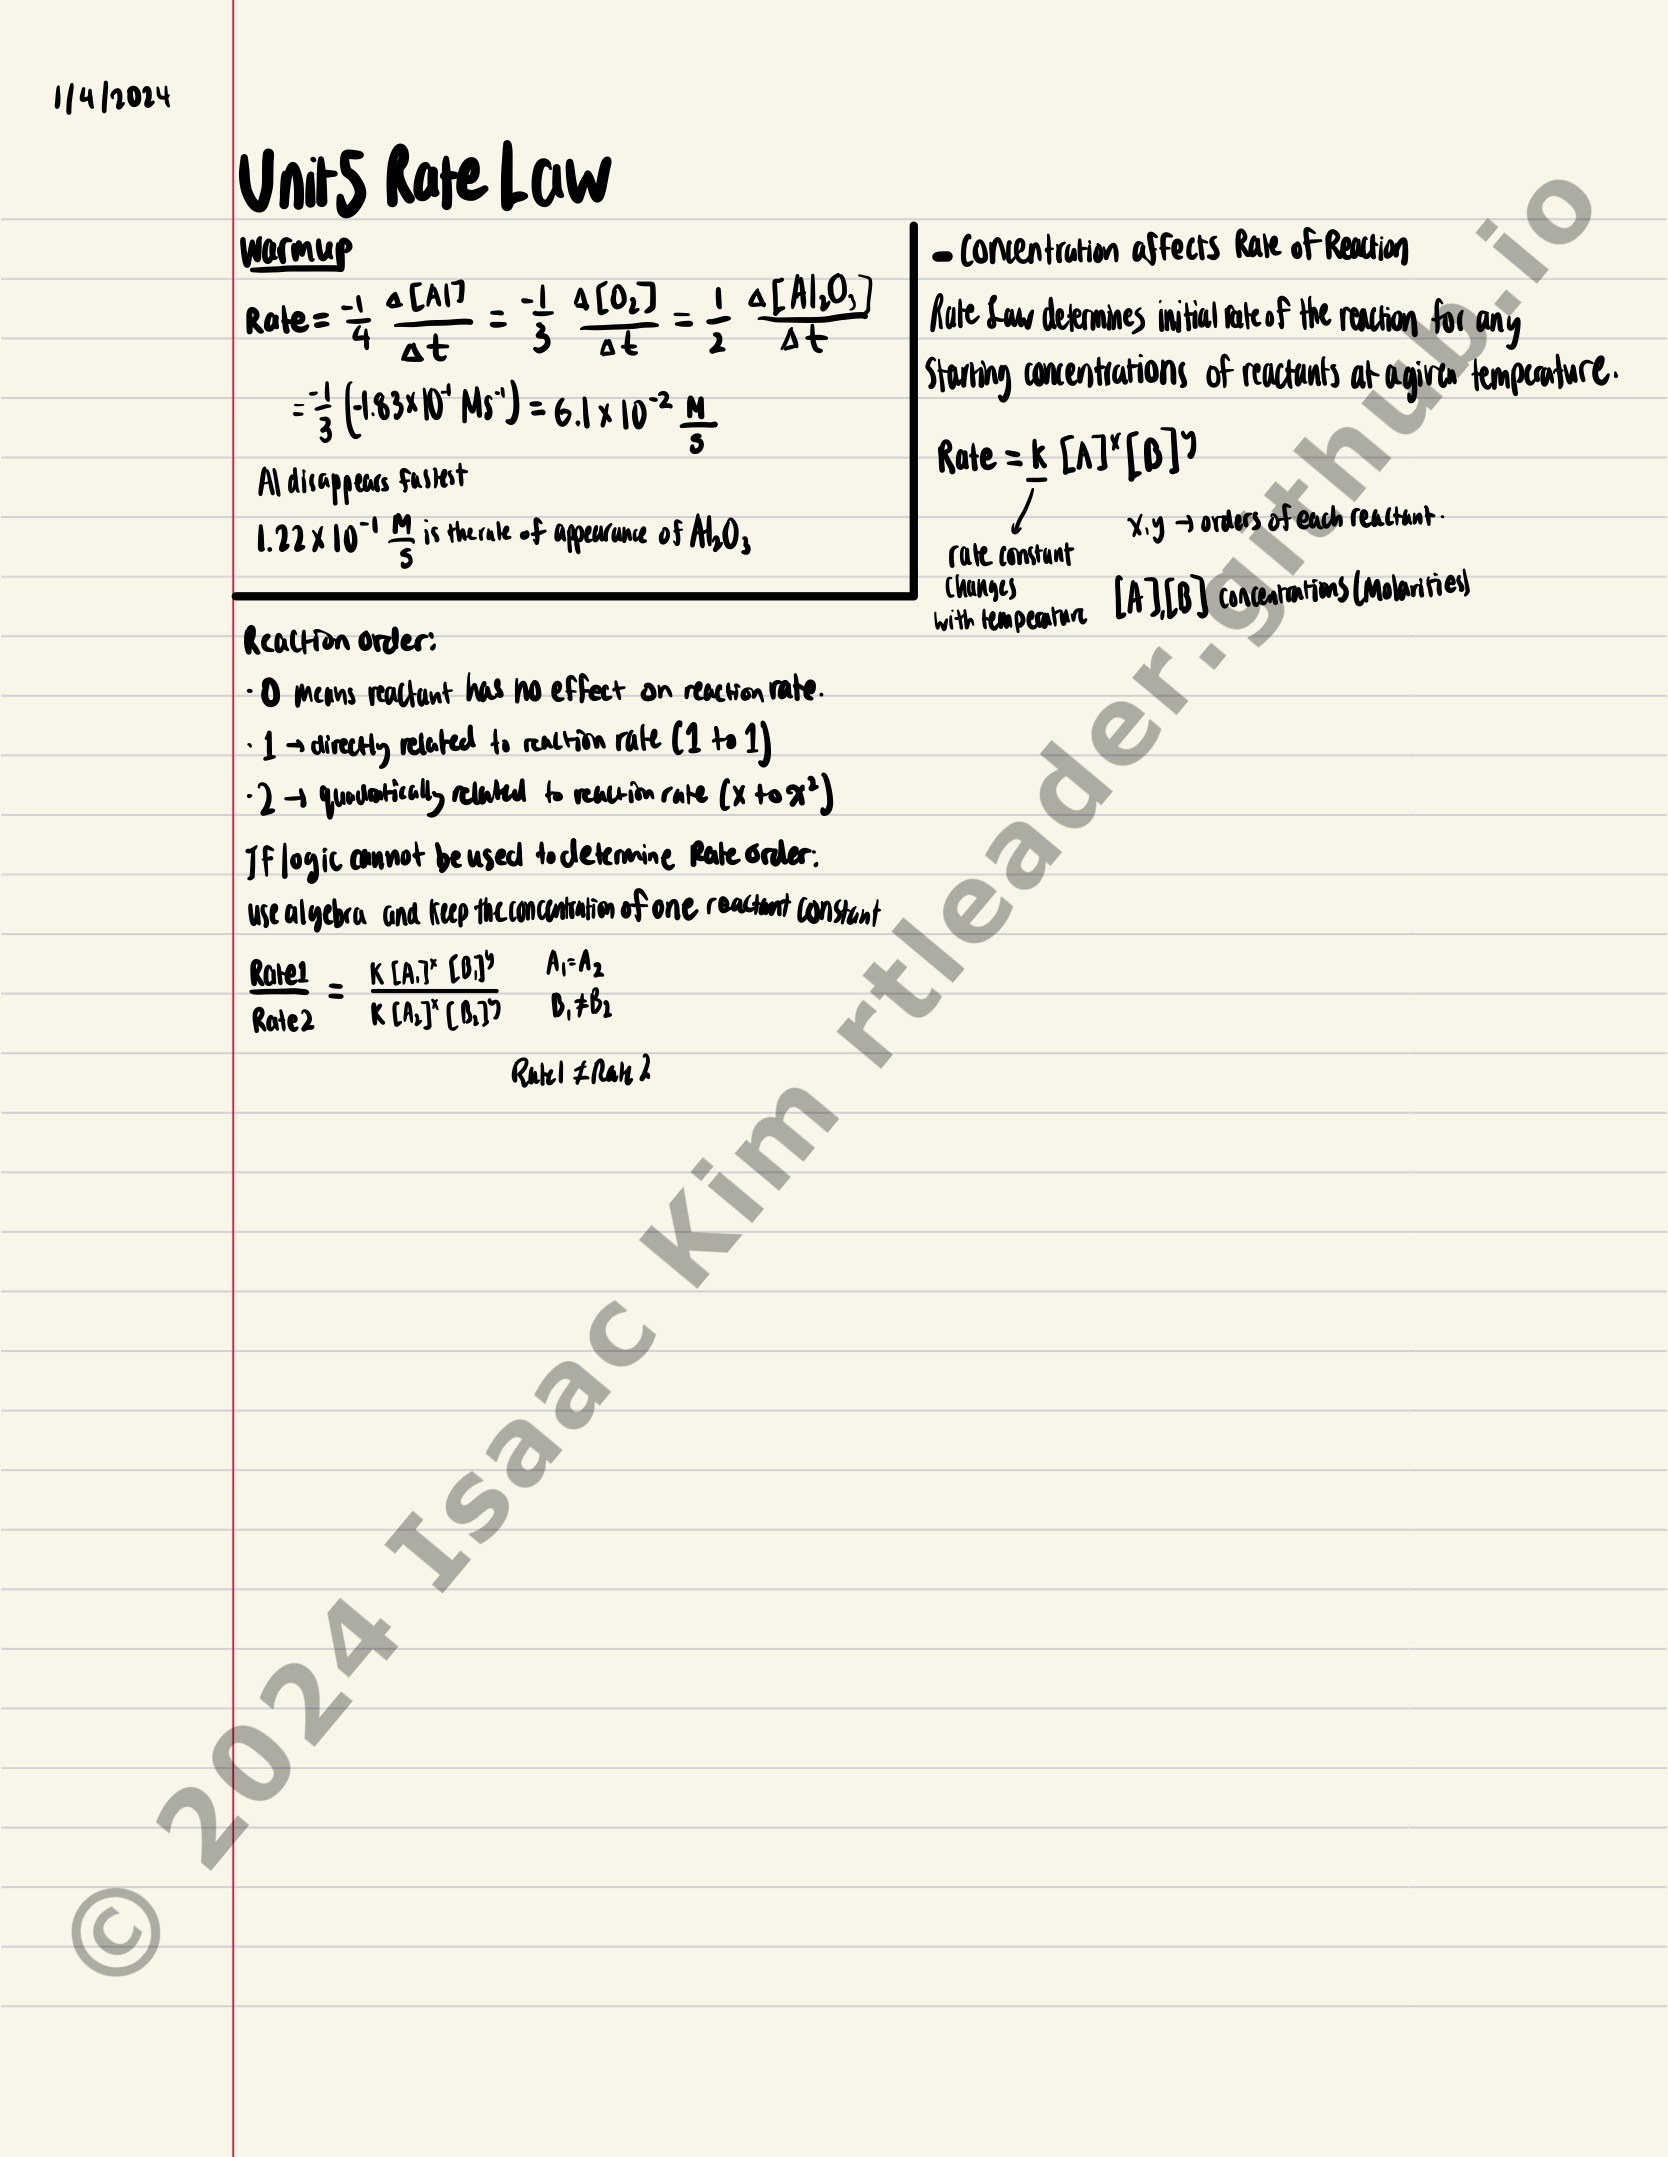 1/4/2024
Unit 5 Rate Law
Warmup
Rate = -1/4 Δ[Al]/Δt = -1/3 Δ[O₂]/Δt = 1/2 Δ[Al₂O₃]/Δt
= -1/3 (-1.83 x 10⁻¹ Ms⁻¹) = 6.1 x 10⁻² M/s
Al disappears fastest
1.22 x 10⁻¹ M/s is the rate of appearance of Al₂O₃
- Concentration affects Rate of Reaction
Rate Law determines initial rate of the reaction for any
Starting concentrations of reactants at a given temperature.
Rate = k [A]ˣ [B]ʸ
x, y → orders of each reactant.
rate constant
changes
with temperature
[A],[B] concentrations (Molarities)
Reaction order:
· 0 means reactant has no effect on reaction rate.
· 1 → directly related to reaction rate (1 to 1)
· 2 → quadratically related to reaction rate (x to x²)
If logic cannot be used to determine Rate order:
use algebra and keep the concentration of one reactant constant
Rate1/Rate2 = K [A₁]ˣ [B₁]ʸ / K [A₂]ˣ [B₂]ʸ
A₁ = A₂
B₁ ≠ B₂
Rate1 ≠ Rate 2
© 2024 Isaac Kim rtleader.github.io